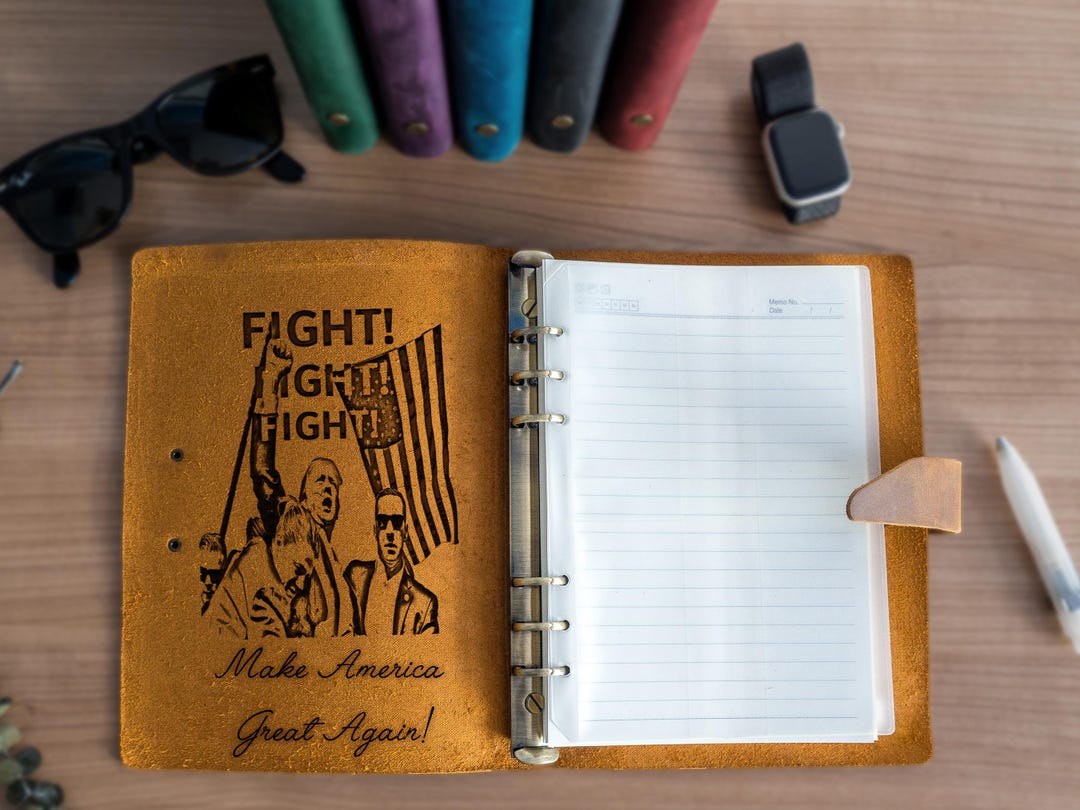 FIGHT!
FIGHT!
FIGHT!
Make America
Great Again!
Memo No.
Date / /